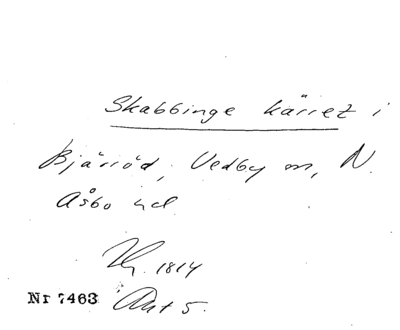 Skabbinge kärret i
Bjärröd, Vedby sn, N.
Åsbo hd.
1814
Nr 7463 Akt 5.